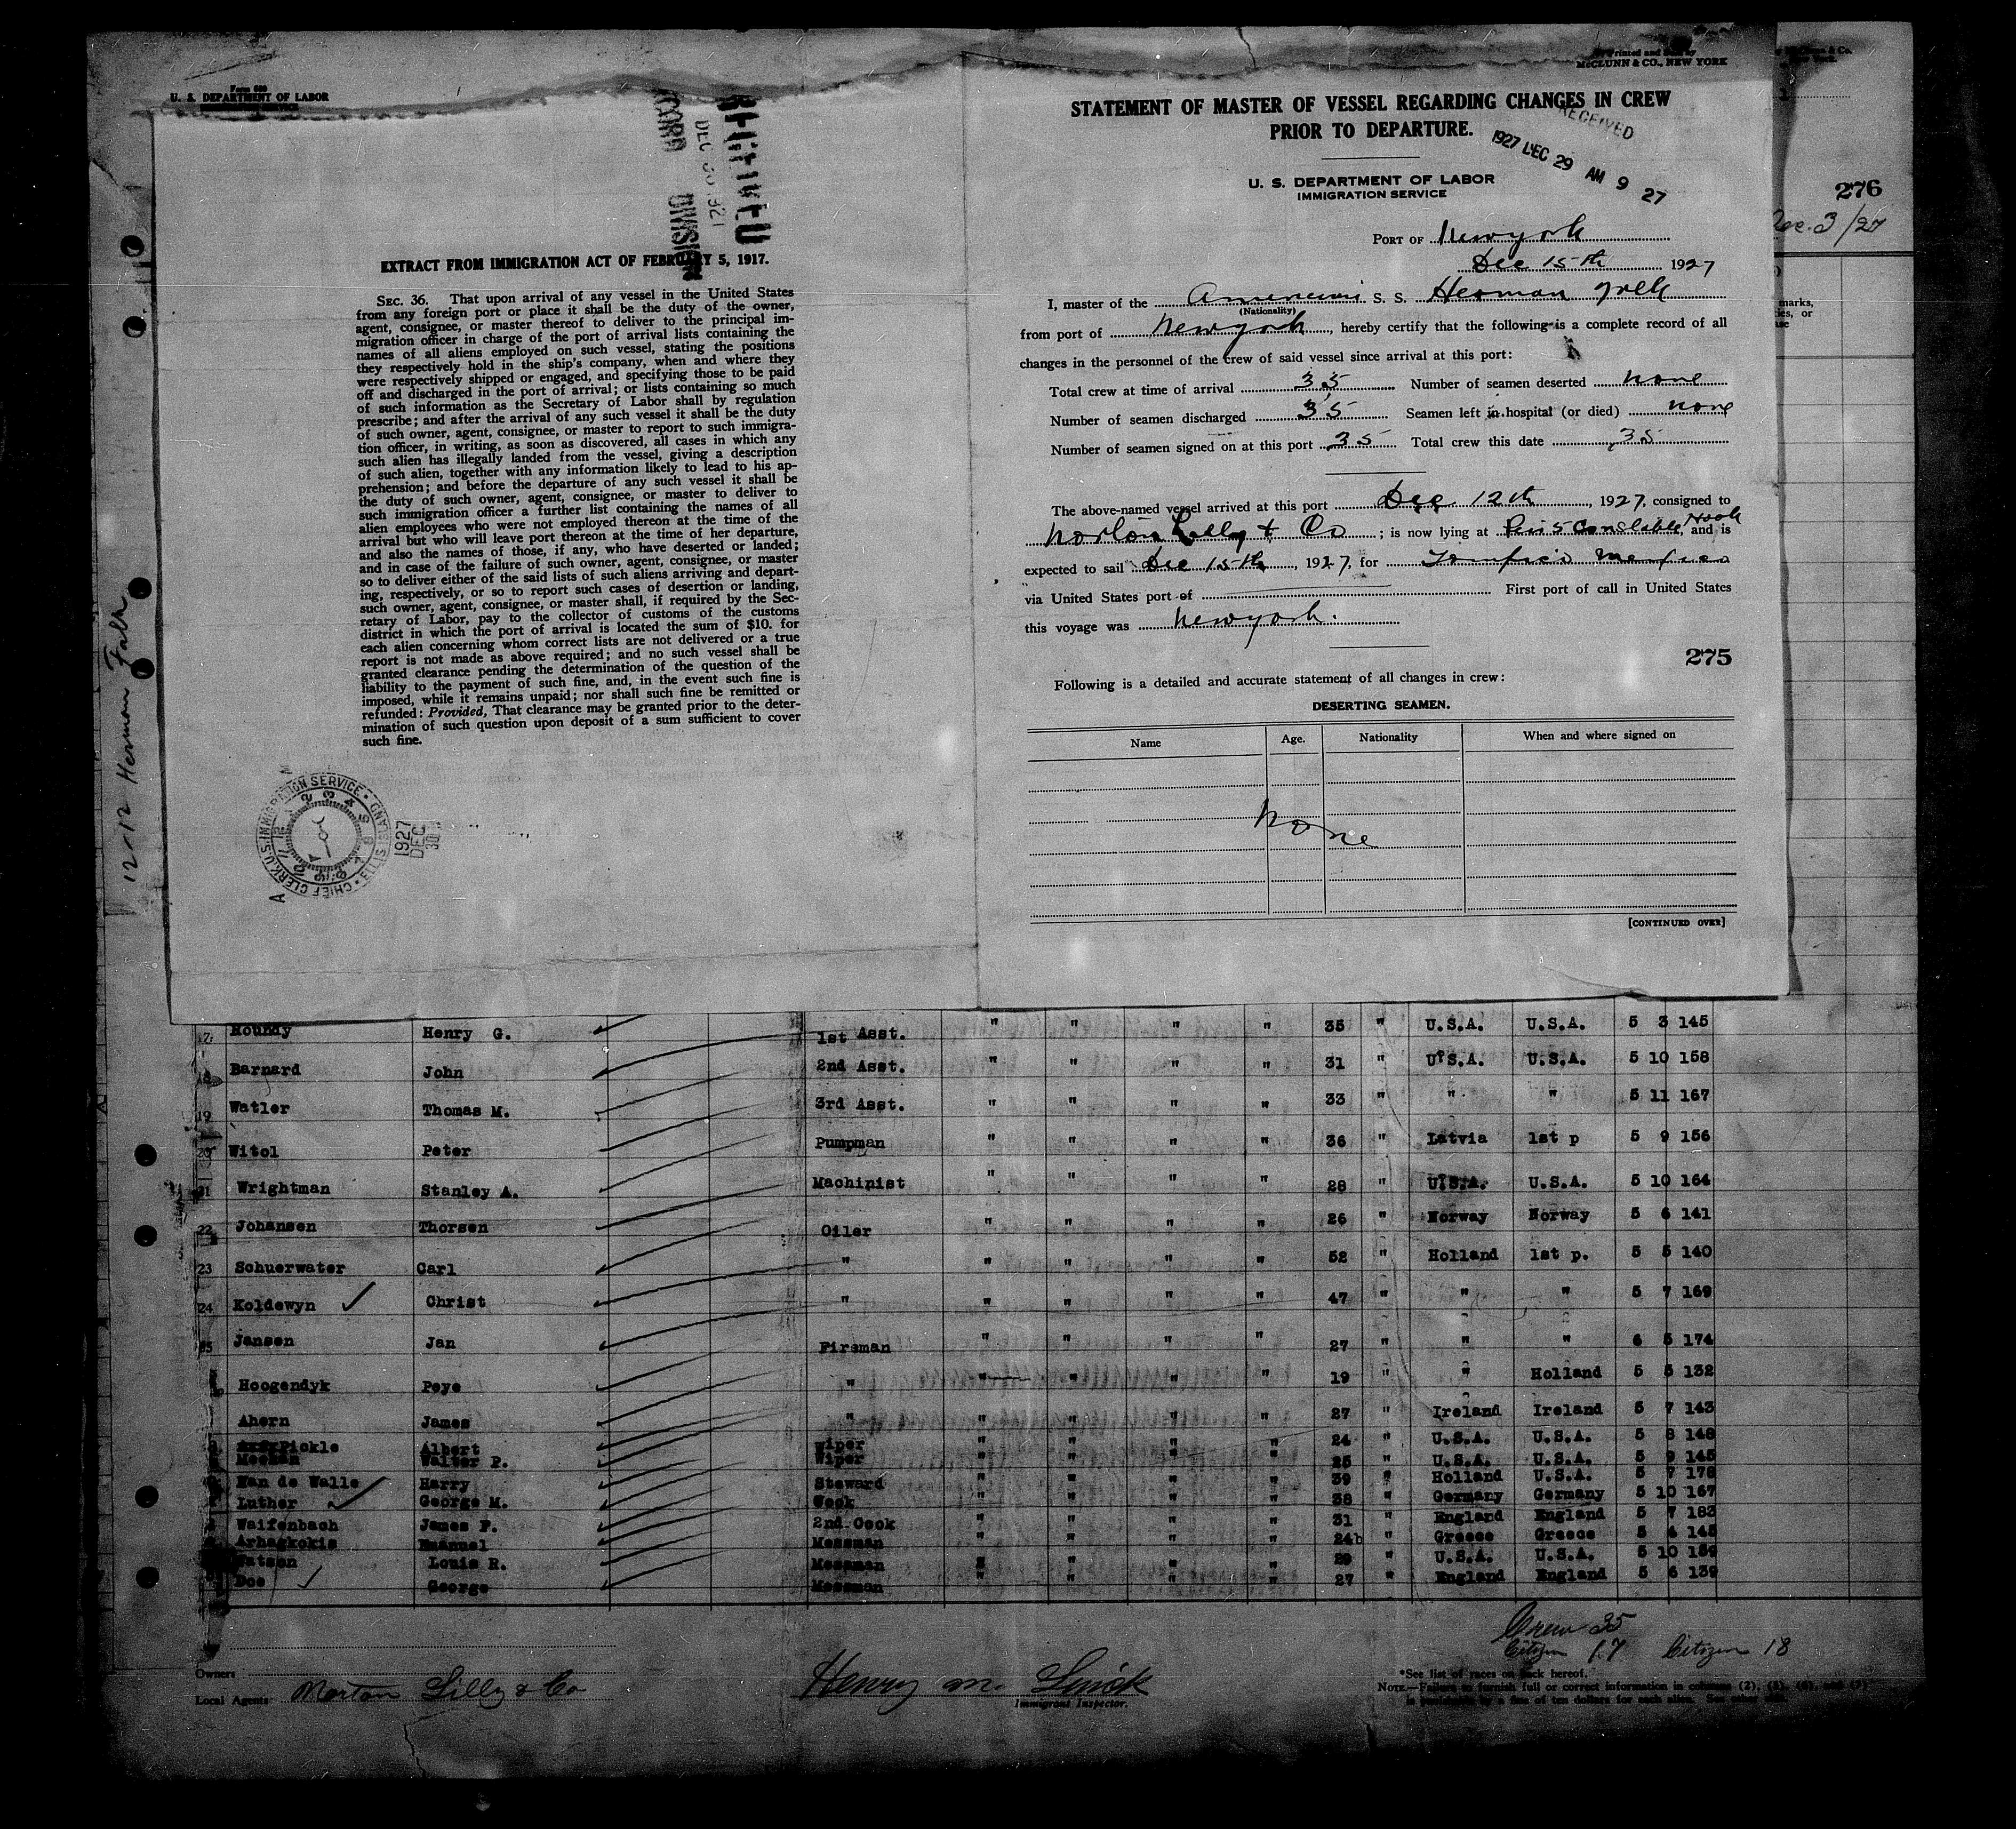 Form 680
U. S. DEPARTMENT OF LABOR
Printed and Sold by
McCLUNN & CO., NEW YORK
276
Dec. 3/27
12-12 Herman Falk
DIVISION
EXTRACT FROM IMMIGRATION ACT OF FEBRUARY 5, 1917.
SEC. 36. That upon arrival of any vessel in the United States
from any foreign port or place it shall be the duty of the owner,
agent, consignee, or master thereof to deliver to the principal im-
migration officer in charge of the port of arrival lists containing the
names of all aliens employed on such vessel, stating the positions
they respectively hold in the ship's company, when and where they
were respectively shipped or engaged, and specifying those to be paid
off and discharged in the port of arrival; or lists containing so much
of such information as the Secretary of Labor shall by regulation
prescribe; and after the arrival of any such vessel it shall be the duty
of such owner, agent, consignee, or master to report to such immigra-
tion officer, in writing, as soon as discovered, all cases in which any
such alien has illegally landed from the vessel, giving a description
of such alien, together with any information likely to lead to his ap-
prehension; and before the departure of any such vessel it shall be
the duty of such owner, agent, consignee, or master to deliver to
such immigration officer a further list containing the names of all
alien employees who were not employed thereon at the time of the
arrival but who will leave port thereon at the time of her departure,
and also the names of those, if any, who have deserted or landed;
and in case of the failure of such owner, agent, consignee, or master
so to deliver either of the said lists of such aliens arriving and depart-
ing, respectively, or so to report such cases of desertion or landing,
such owner, agent, consignee, or master shall, if required by the Sec-
retary of Labor, pay to the collector of customs of the customs
district in which the port of arrival is located the sum of $10. for
each alien concerning whom correct lists are not delivered or a true
report is not made as above required; and no such vessel shall be
granted clearance pending the determination of the question of the
liability to the payment of such fine, and, in the event such fine is
imposed, while it remains unpaid; nor shall such fine be remitted or
refunded: Provided, That clearance may be granted prior to the deter-
mination of such question upon deposit of a sum sufficient to cover
such fine.
CHIEF CLERK, U.S. IMMIGRATION SERVICE • ELLIS ISLAND •
1927
DEC
30
STATEMENT OF MASTER OF VESSEL REGARDING CHANGES IN CREW
PRIOR TO DEPARTURE.
RECEIVED
1927 DEC 29 AM 9 27
U. S. DEPARTMENT OF LABOR
IMMIGRATION SERVICE
PORT OF New york
Dec 15th 1927
I, master of the American S. S. Herman Falk
(Nationality)
from port of New york, hereby certify that the following is a complete record of all
changes in the personnel of the crew of said vessel since arrival at this port:
Total crew at time of arrival 35 Number of seamen deserted none
Number of seamen discharged 35 Seamen left in hospital (or died) none
Number of seamen signed on at this port 35 Total crew this date 35
The above-named vessel arrived at this port Dec 12th, 1927, consigned to
Norton Lilly & Co; is now lying at Pier 5 Constable Hook, and is
expected to sail Dec 15th, 1927, for Tampico Mexico
via United States port of First port of call in United States
this voyage was New york.
275
Following is a detailed and accurate statement of all changes in crew:
DESERTING SEAMEN.
Name Age. Nationality When and where signed on
None
[CONTINUED OVER]
17 Roundy Henry G. 1st Asst. " " " " 35 " U.S.A. U.S.A. 5 3 145
18 Barnard John 2nd Asst. " " " " 31 " U.S.A. U.S.A. 5 10 158
19 Watler Thomas M. 3rd Asst. " " " " 33 " " " 5 11 167
20 Witol Peter Pumpman " " " " 36 " Latvia 1st p 5 9 156
21 Wrightman Stanley A. Machinist " " " " 28 " U.S.A. U.S.A. 5 10 164
22 Johansen Thorsen Oiler " " " " 26 " Norway Norway 5 6 141
23 Schuerwater Carl " " " " " 52 " Holland 1st p. 5 5 140
24 Koldewyn Christ " " " " " 47 " " " 5 7 169
25 Jansen Jan Fireman " " " " 27 " " " 6 5 174
Hoogendyk Peye " " " " " 19 " " Holland 5 5 132
Ahern James " " " " " 27 " Ireland Ireland 5 7 143
Pickle Albert Wiper " " " " 24 " U.S.A. U.S.A. 5 8 148
Meehan Walter P. Wiper " " " " 25 " U.S.A. U.S.A. 5 9 145
Van de Walle Harry Steward " " " " 39 " Holland U.S.A. 5 7 178
Luther George M. Wook " " " " 38 " Germany Germany 5 10 167
Waifenbach James F. 2nd Cook " " " " 31 " England England 5 7 183
Arhagkokis Emanuel Messman " " " " 24 " Greece Greece 5 4 145
Watson Louis R. Messman " " " " 29 " U.S.A. U.S.A. 5 10 159
Doe George Messman " " " " 27 " England England 5 6 139
Crew 35
Citizen 17 Citizen 18
Owners
Local Agents Norton Lilly & Co
Henry M.
Immigrant Inspector.
*See list of races on back hereof.
NOTE.—Failure to furnish full or correct information in columns (2), (5), (6), and (7)
is punishable by a fine of ten dollars for each alien.